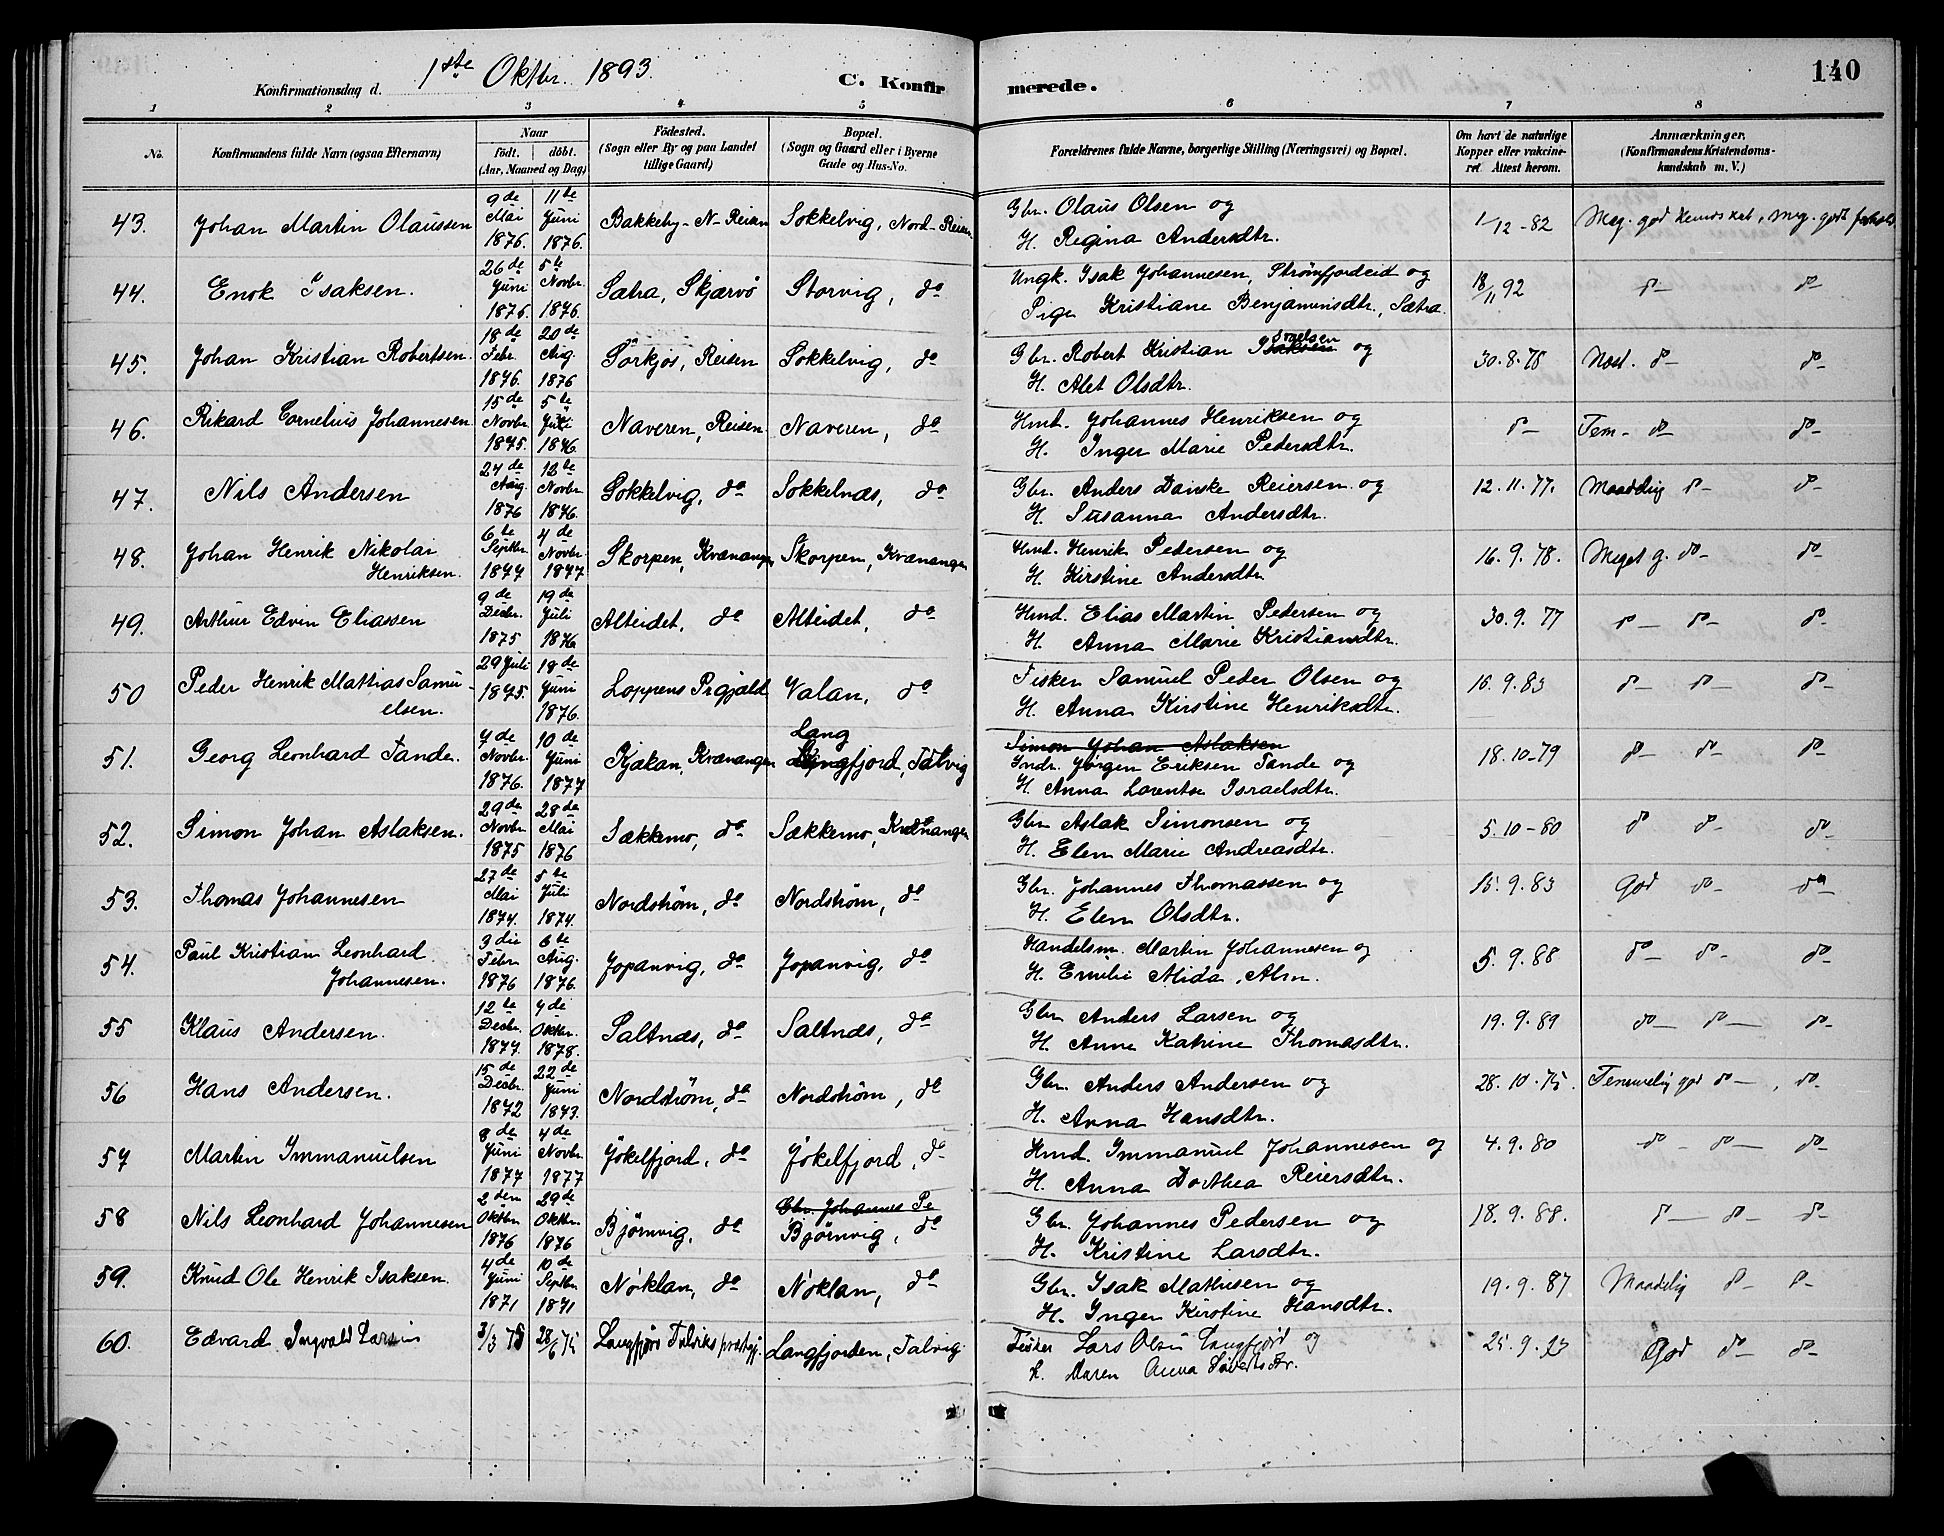 Konfirmationsdag d. 1ste Oktbr. 1893. C. Konfirmerede. 140
1 2 3 4 5 6 7 8
No. Konfirmandens fulde Navn (ogsaa Efternavn) Naar födt. döbt. (Aar, Maaned og Dag) Födested. (Sogn eller By og paa Landet tillige Gaard) Bopæl. (Sogn og Gaard eller i Byerne Gade og Hus-No. Forældrenes fulde Navne, borgerlige Stilling (Næringsvei) og Bopæl. Om havt de naturlige Kopper eller vakcineret. Attest herom. Anmærkninger. (Konfirmandens Kristendomskundskab m. V.)
43. Johan Martin Olaussen 9de Mai 1876. 11te Juni 1876. Bakkeby - N-Reisen Sokkelvig, Nord-Reisen Gbr. Olaus Olsen og
H. Regina Andersdtr. 1/12-82 Meg. god Kundskab, meg. godt forhold
44. Enok Isaksen. 26de Juni 1876. 5te Novbr. 1876. Sætra, Skjærvö Storvig, do Ungk. Isak Johannesen, Strømfjordeid og
Pige Kristiane Benjaminsdtr., Sætra. 18/11 92 do do
45. Johan Kristian Robertsen. 18de Febr. 1876. 20de Aug. 1876 Sörkjos, Reisen Sokkelvig, do Gbr. Robert Kristian Isaksen Israelsen og
H. Alet Olsdtr. 30.8.78 Nost. do do
46. Rikard Cornelius Johannesen 15de Novbr 1875. 5te Juli 1876. Naveren, Reisen Naveren, do Hmd. Johannes Henriksen og
H. Inger Marie Pedersdtr. do Tem- do do
47. Nils Andersen 24de Aug. 1876 12te Novbr 1876. Sokkelvig, do Sokkelnæs, do Gbr. Anders Danske Reiersen og
H. Susanna Andersdtr. 12.11.77. Maadelig do do
48. Johan Henrik Nikolai
Henriksen. 6te Septbr. 1877 4de Novbr. 1877 Skorpen, Kvænangen Skorpen, Kvænangen Hmd. Henrik Pedersen og
H. Kirstine Andersdtr 16.9.78. Meget g. do do
49. Arthur Edvin Eliassen 9de Desbr. 1875 19de Juli 1876 Alteidet, do Alteidet, do Hmd. Elias Martin Pedersen og
H. Anna Marie Kristiansdtr. 30.9.77 do do do
50 Peder Henrik Mattias Samu-
elsen. 29 Juli 1875. 18de Juni 1876. Loppens Prgjæld Valan, do Fisker Samuel Peder Olsen og
H. Anna Kirstine Henriksdtr. 16.9.83 do do do
51. Georg Leonhard Tande. 7de Novbr. 1876. 10de Juni 1877 Kjækan, Kvænangen Lang
Langfjord, Talvig Simon Johan Aslaksen
Indr. Jørgen Eriksen Tande og
H. Anna Lorentse Israelsdtr. 18.10-79 do do do
52. Simon Johan Aslaksen. 29de Novbr 1875 28de Mai 1876 Sækkemo, do Sækkemo, Kvænangen Gbr Aslak Simonsen og
H. Elen Marie Andreasdtr. 5.10-80 do do do
53. Thomas Johannesen 27de Mai 1874. 5te Juli 1874. Nordstrøm, do Nordstrøm, do Gbr. Johannes Thomassen og
H. Elen Olsdtr. 15.9.83 God do do
54. Paul Kristian Leonhard
Johannesen. 3die Febr 1876 6te Aug. 1876. Jopanvig, do Jopanvig, do Handelsm. Martin Johannesen og
H. Emilie Alida Alm. 5.9.88 do do do
55 Klaus Andersen. 12te Desbr. 1877. 7de Oktbr. 1878. Saltnæs, do Saltnæs, do Gbr Anders Larsen og
H. Anne Katrine Thomasdtr. 19.9.89 do do do
56 Hans Andersen. 15de Desbr. 1872 22de Juni 1873. Nordstrøm, do Nordstrøm, do Gbr. Anders Andersen og
H. Anna Hansdtr. 28.10.75. Temmelig god do, do
57 Martin Immanuelsen 8de Juni 1877 4de Novbr. 1877 Jökelfjord, do Jökelfjord, do Hmd. Immanuel Johannesen og
H. Anna Dorthea Reiersdtr. 4.9.80 do do do
58 Nils Leonhard Johannesen 2den Oktbr 1876 29de Oktbr. 1876 Bjørnvig, do Gbr. Johannes Pe
Bjørnvig, do Gbr. Johannes Pedersen og
H. Kristine Larsdtr. 18.9.88. do do do
59. Knud Ole Henrik Isaksen. 4de Juni 1871 10de Septbr. 1871 Nöklan, do Nöklan, do Gbr. Isak Mathisen og
H. Inger Kirstine Hansdtr. 19.9.87 Maadelig do do
60. Edvard Ingvald Larsen 3/3 78 28/6 Langfjord Talviks præstgj. Langfjorden, Talvig. Fisker Lars Olsen Langfjord og
H. Maren Anna Sivertsdtr. 25.9.93 God do do